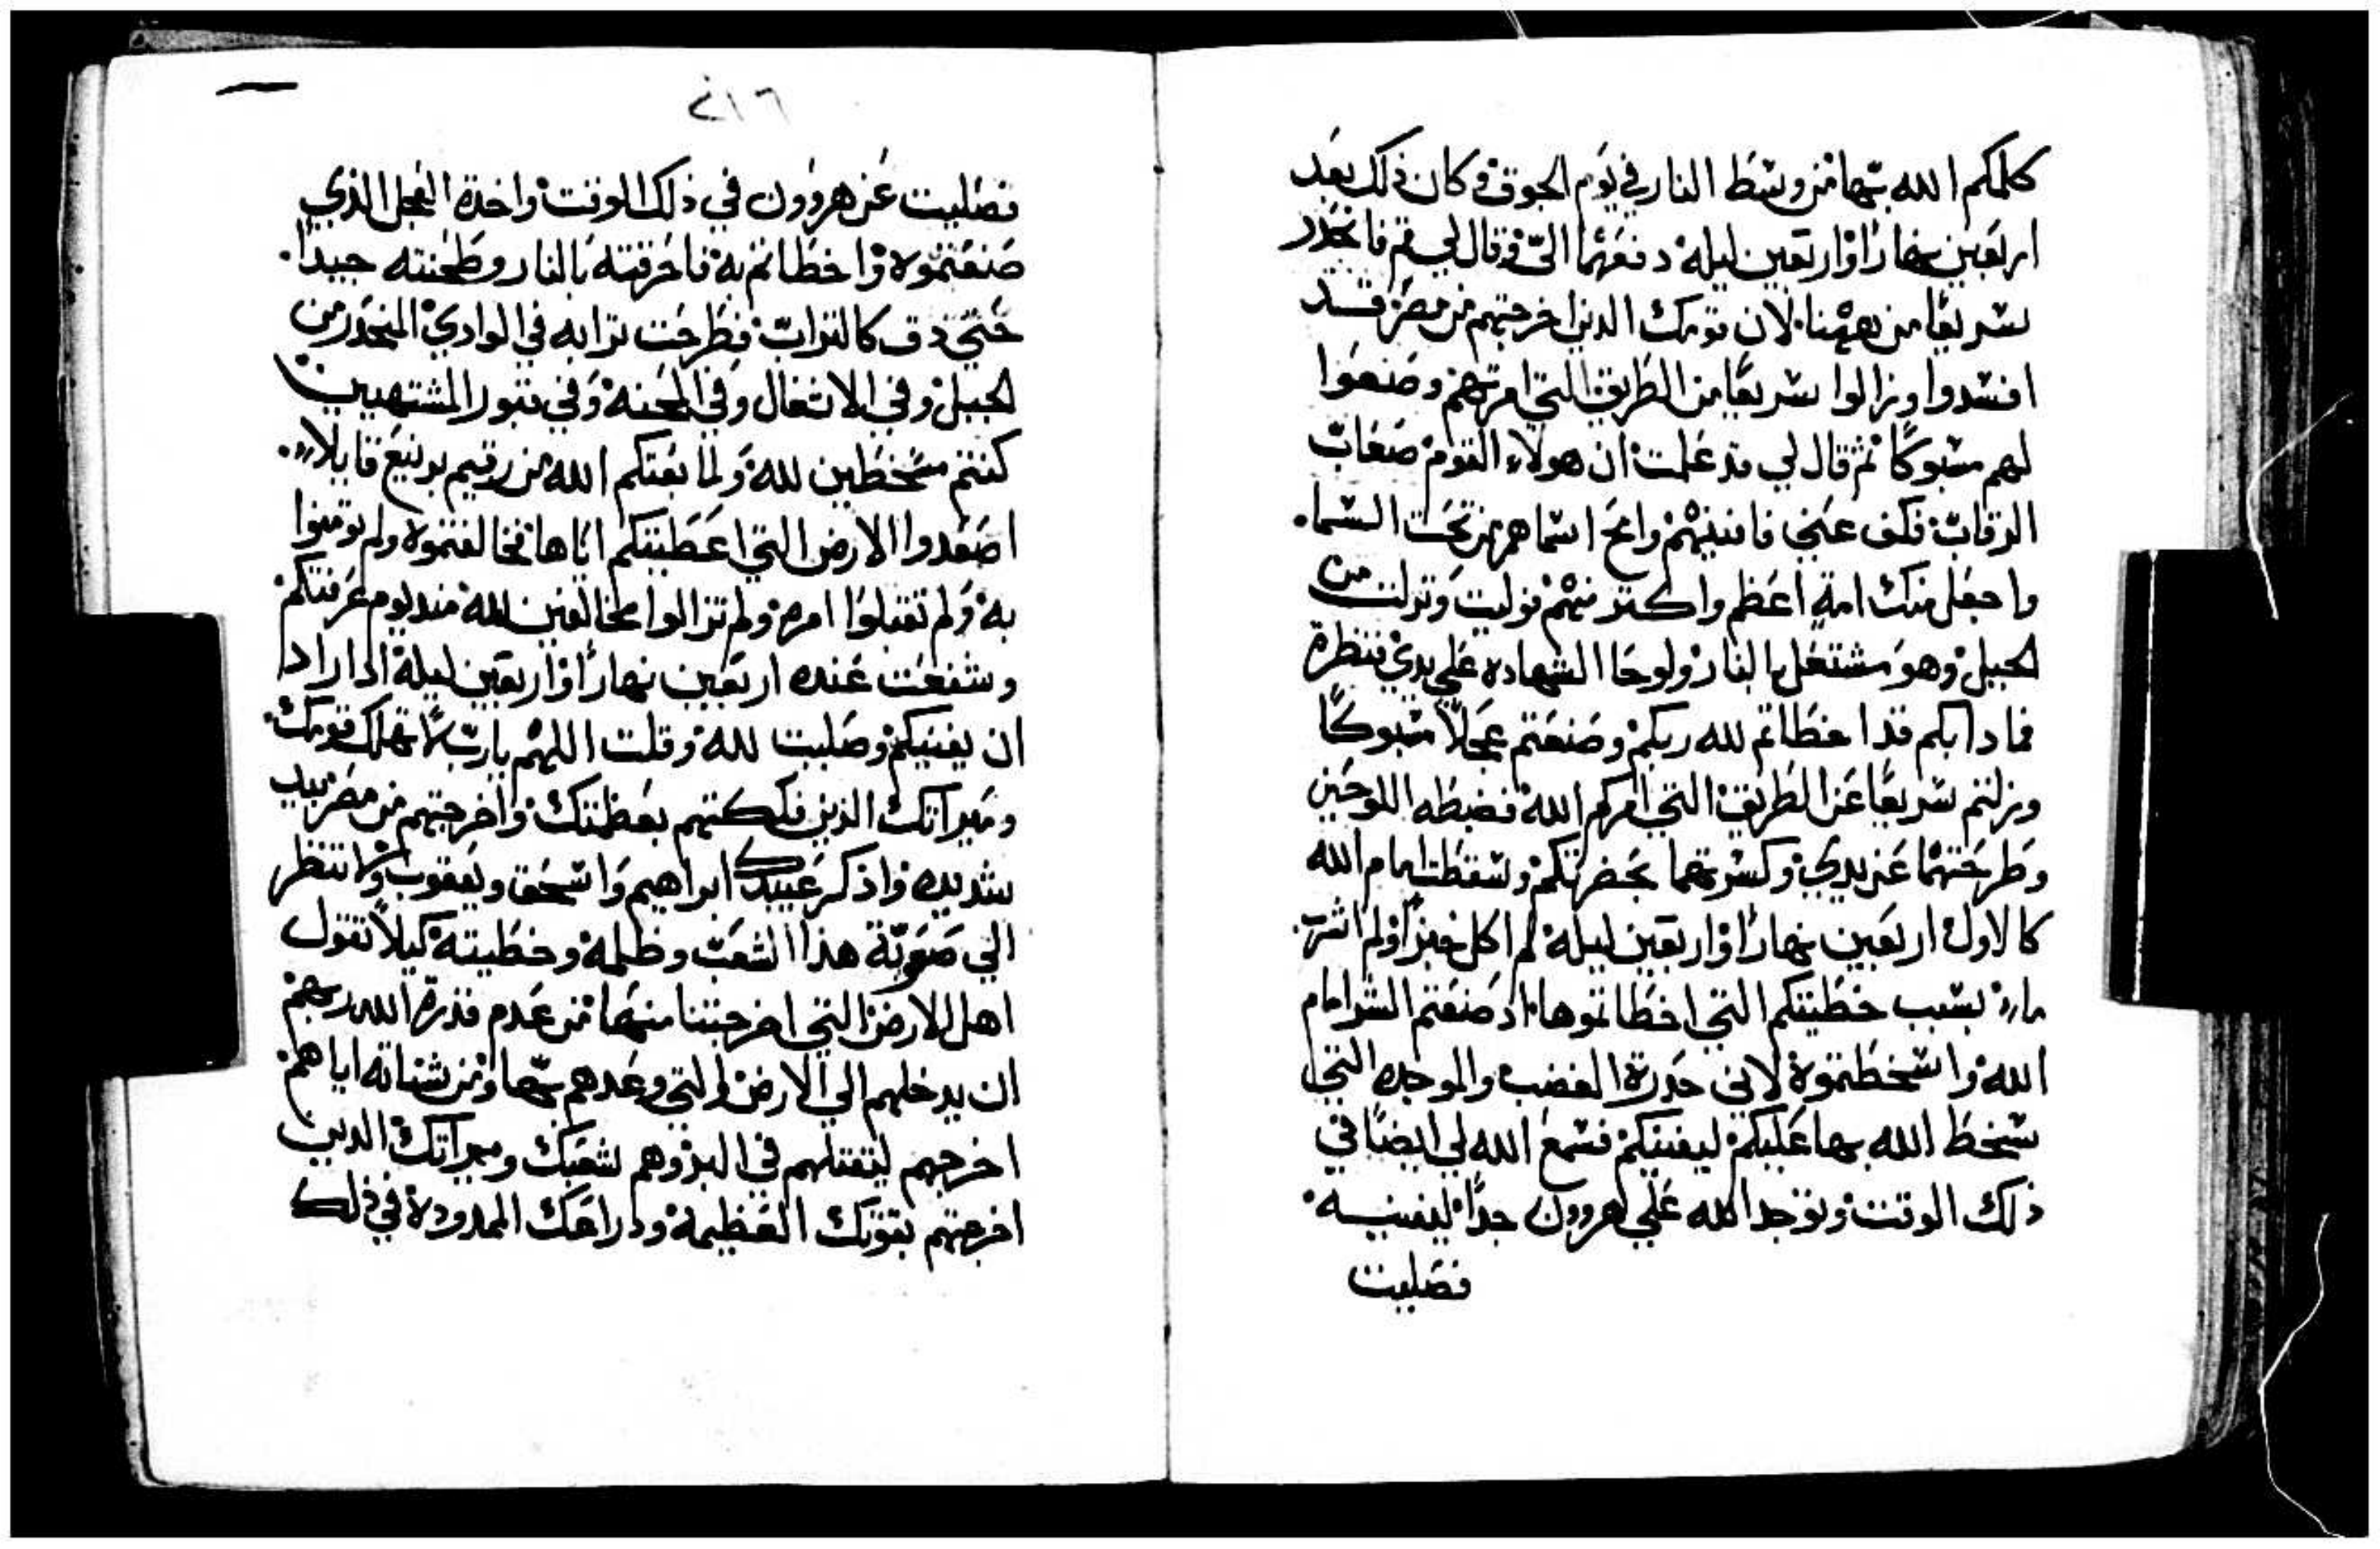 كلمكم الله بها من وسط النار في يوم الجوق وكان ذلك بعد
اربعين نهارا واربعين ليلة دفعهما الىّ وقال لي قم فانحدر
سريعا من ههنا لان قومك الدين اخرجتهم من مصر قد
افسدوا وزالوا سريعا من الطريق التي امرتهم وصنعوا
لهم مسبوكا ثم قال لي قد علمت ان هولاء القوم صعاب
الرقاب فكف عني فافنيهم وامح اسماهم من تحت السما
واجعل منك امة اعظم واكتر منهم فوليت ونزلت من
الجبل وهو مشتعل بالنار ولوحا الشهاده على يدي فنظرة
فادا بكم قد اخطاتم لله ربكم وصنعتم عجلا مسبوكا
وزلتم سريعا عن الطريق التي امركم الله فضبطه اللوحين
وطرحتهما عن يدي وكسرتهما بحضرتكم وسقطت امام الله
كالاول اربعين نهارا واربعين ليلة لم اكل خبزا ولم اشرب
ماء بسبب خطيتكم التي اخطاتموها اد صنعتم الشر امام
الله واسخطتموة لاني حدرة الغضب والموجده التي
سخط الله بها عليكم ليفنيكم فسمع الله لي ايضا في
ذلك الوقت وتوجد الله علي هرون جدا ليفنيه
فصليت
٢١٦
فصليت عن هرون في ذلك الوقت واخدة العجل الذي
صنعتموه واخطاتم به فاحرقته بالنار وطحنته جيدا
حتي دق كالتراب فطرحت ترابه في الوادي المنحدر من
الجبل وفي الاتعال وفي المحنة وفي قبور المشتهيين
كنتم مسخطين لله ولما بعتكم الله من رقيم برنيع قايلا
اصعدوا الارض التي اعطيتكم اياها فخالفتموه ولم تومنوا
به ولم تقبلوا امره ولم تزالوا مخالفين لله مند يوم عرفتكم
وشفعت عنده اربعين نهارا واربعين ليلة اد اراد
ان يفنيكم وصليت لله وقلت اللهم يارب لا تهلك قومك
وميراتك الدين فككتهم بعظمتك واخرجتهم من مصر بيد
شديده واذكر عبيدك ابراهيم واسحق ويعقوب ولا تنظر
الي صعوبة هذا الشعب وظلمة وخطيته كيلا تقول
اهل الارض التي اخرجتنا منها من عدم قدرة الله ربهم
ان يدخلهم الي الارض التي وعدهم بها ومن شناته اياهم
اخرجهم ليقتلهم في البر وهم شعبك وميراتك الدين
اخرجتهم بقوتك العظيمة ودراعك الممدودة في ذلك